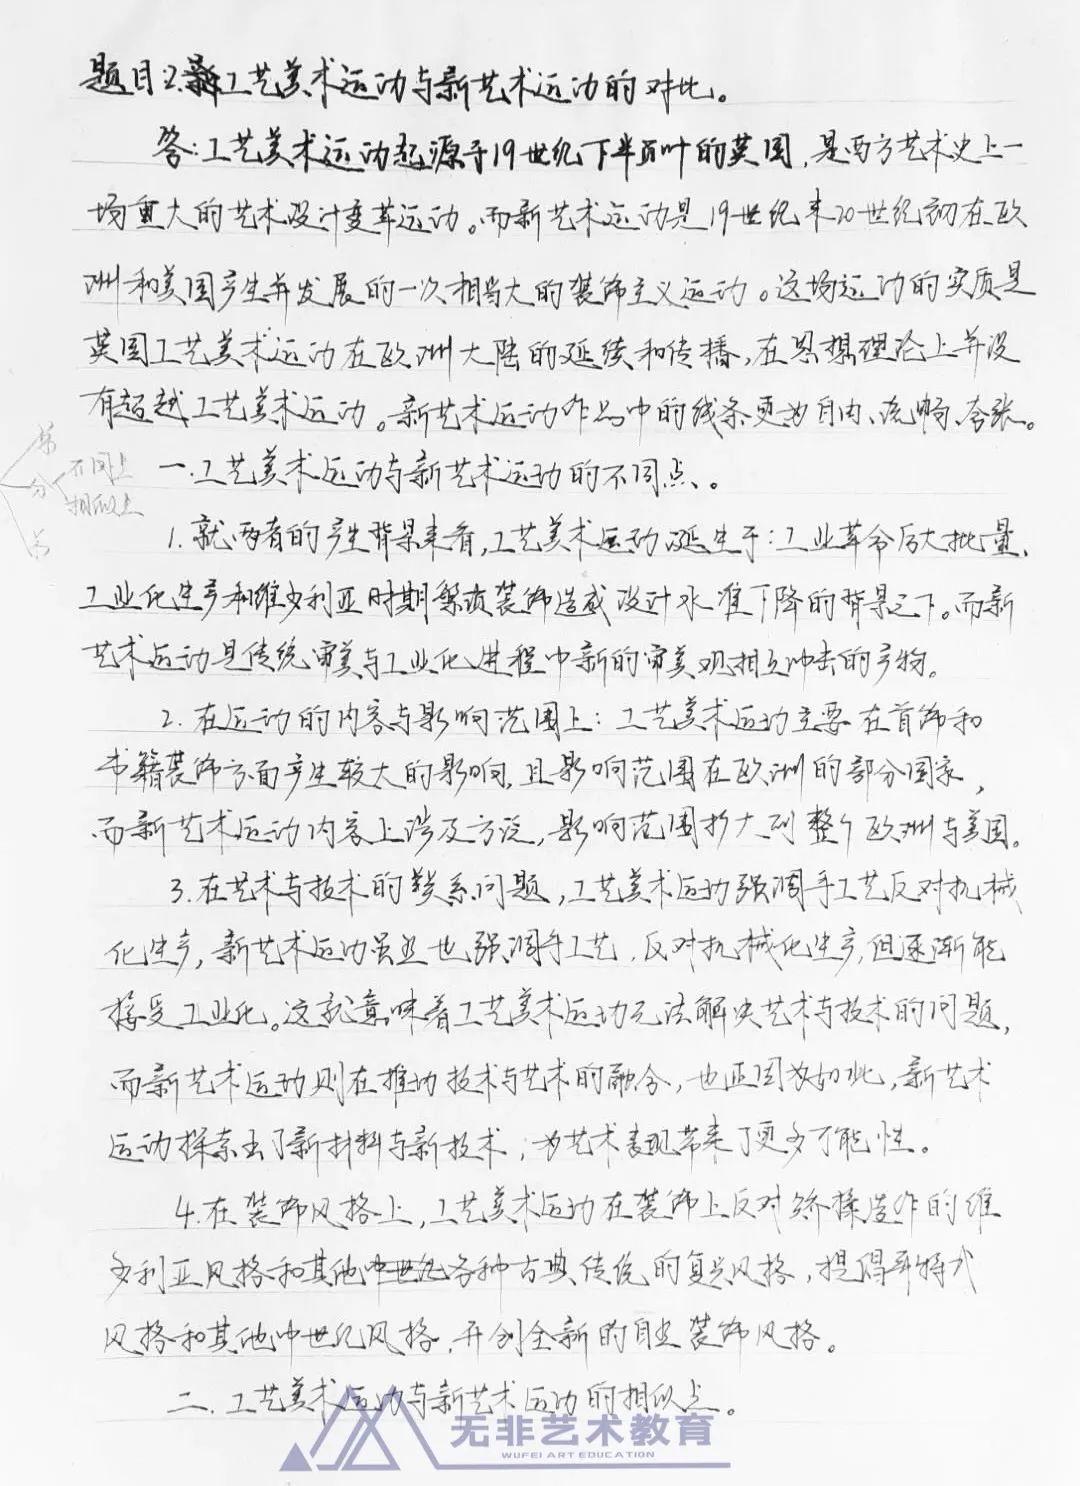 题目2.工艺美术运动与新艺术运动的对比。
答:工艺美术运动起源于19世纪下半叶的英国,是西方艺术史上一
场重大的艺术设计变革运动。而新艺术运动是19世纪末20世纪初在欧
洲和美国产生并发展的一次相当大的装饰主义运动。这场运动的实质是
英国工艺美术运动在欧洲大陆的延续和传播,在思想理论上并没
有超越工艺美术运动。新艺术运动作品中的线条更为自由、流畅、夸张。
不同点
分
相似点
一.工艺美术运动与新艺术运动的不同点、。
1.就两者的产生背景来看,工艺美术运动诞生于:工业革命后大批量、
工业化生产和维多利亚时期繁琐装饰造成设计水准下降的背景之下。而新
艺术运动是传统审美与工业化进程中新的审美观相互冲击的产物。
2.在运动的内容与影响范围上:工艺美术运动主要在首饰和
书籍装饰方面产生较大的影响,且影响范围在欧洲的部分国家,
而新艺术运动内容上涉及方泛,影响范围扩大到整个欧洲与美国。
3.在艺术与技术的关系问题,工艺美术运动强调手工艺反对机械
化生产,新艺术运动虽然也强调手工艺,反对机械化生产,但逐渐能
接受工业化。这就意味着工艺美术运动无法解决艺术与技术的问题,
而新艺术运动则在推动技术与艺术的融合,也正因为如此,新艺术
运动探索出了新材料与新技术,为艺术表现带来了更多可能性。
4.在装饰风格上,工艺美术运动在装饰上反对矫揉造作的维
多利亚风格和其他各种古典传统的复兴风格,提倡哥特式
风格和其他中世纪风格,开创全新的自然装饰风格。
二.工艺美术运动与新艺术运动的相似点。
无非艺术教育
WUFEI ART EDUCATION